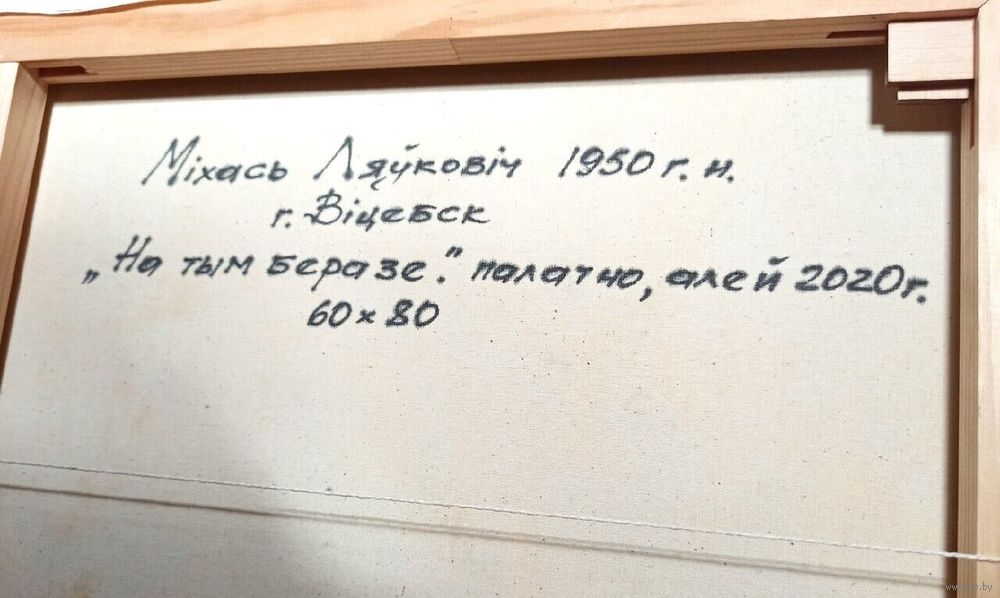 Міхась Ляўковіч 1950 г. н.
г. Віцебск
„На тым беразе." палатно, алей 2020 г.
60 x 80